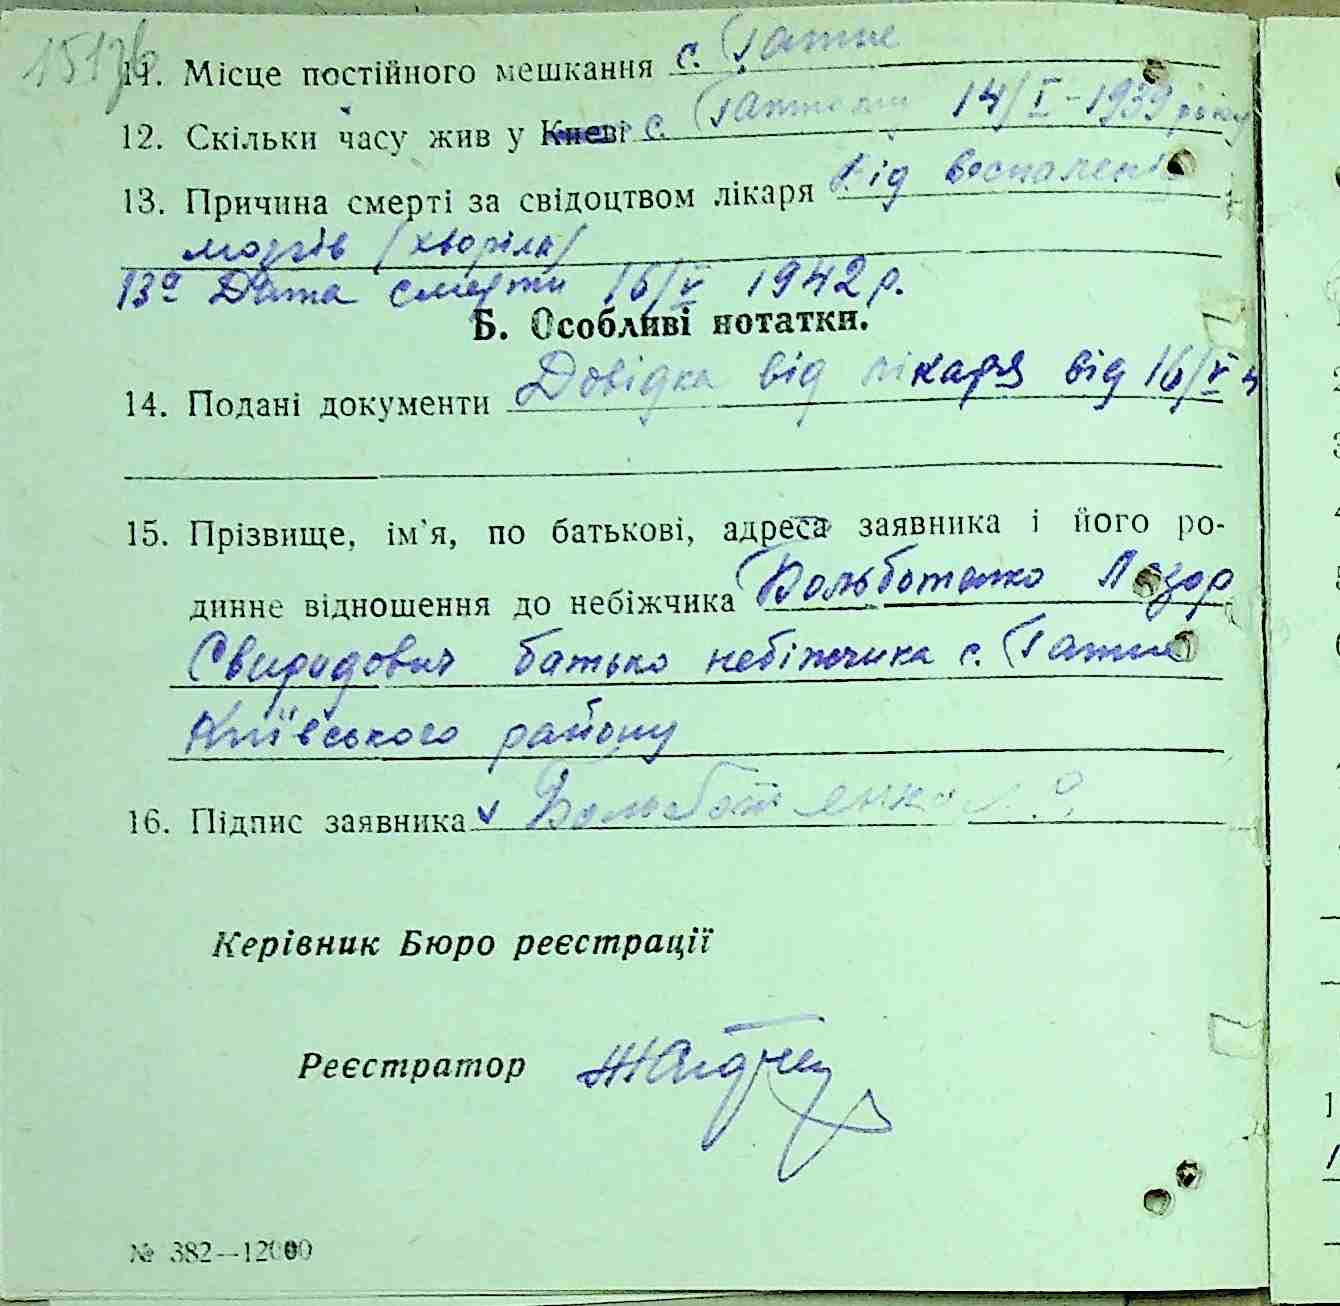 11. Місце постійного мешкання с. Гатне
12. Скільки часу жив у Києві с. Гатному 14/I-1939 року
13. Причина смерті за свідоцтвом лікаря Від воспаленія
мозгів /хворіла/
13а Дата смерти 16/V 1942 р.
Б. Особливі нотатки.
14. Подані документи Довідка від лікаря від 16/V 4
15. Прізвище, ім'я, по батькові, адреса заявника і його ро-
динне відношення до небіжчика Вольботенко Лазор
Свиридович батько небіжчика с. Гатне
Київського району
16. Підпис заявника Вольботенко Л. С.
Керівник Бюро реєстрації
Реєстратор
№ 382—12000